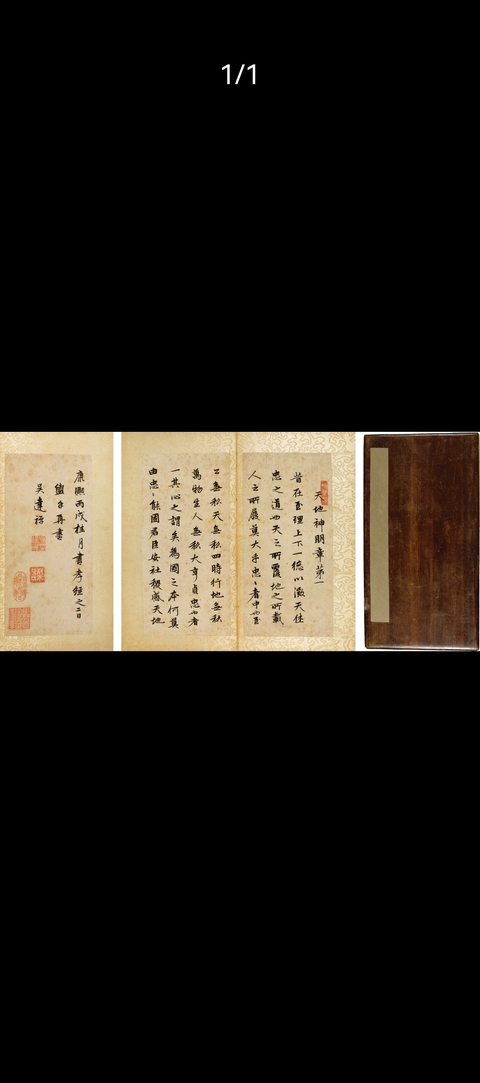 1/1
天地神明章第一
昔在至理上下一德以徵天休
忠之道也天之所覆地之所載
人之所履莫大乎忠〻者中也至
公無私天無私四時行地無私
萬物生人無私大亨貞忠也者
一其心之謂矣為國之本何莫
由忠〻能固君臣安社稷感天地
康熙丙戌桂月書孝經之二日
盥手再書
吳達